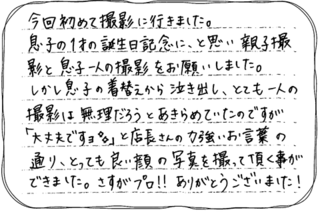 今回初めて撮影に行きました。
息子の1才の誕生日記念に、と思い 親子撮
影と息子一人の撮影をお願いしました。
しかし息子の着替えから泣き出し、とても一人の
撮影は無理だろうとあきらめていたのですが
「大丈夫ですョ。」と店長さんの力強いお言葉の
通り、とっても良い顔の写真を撮って頂く事が
できました。さすがプロ!! ありがとうございました!